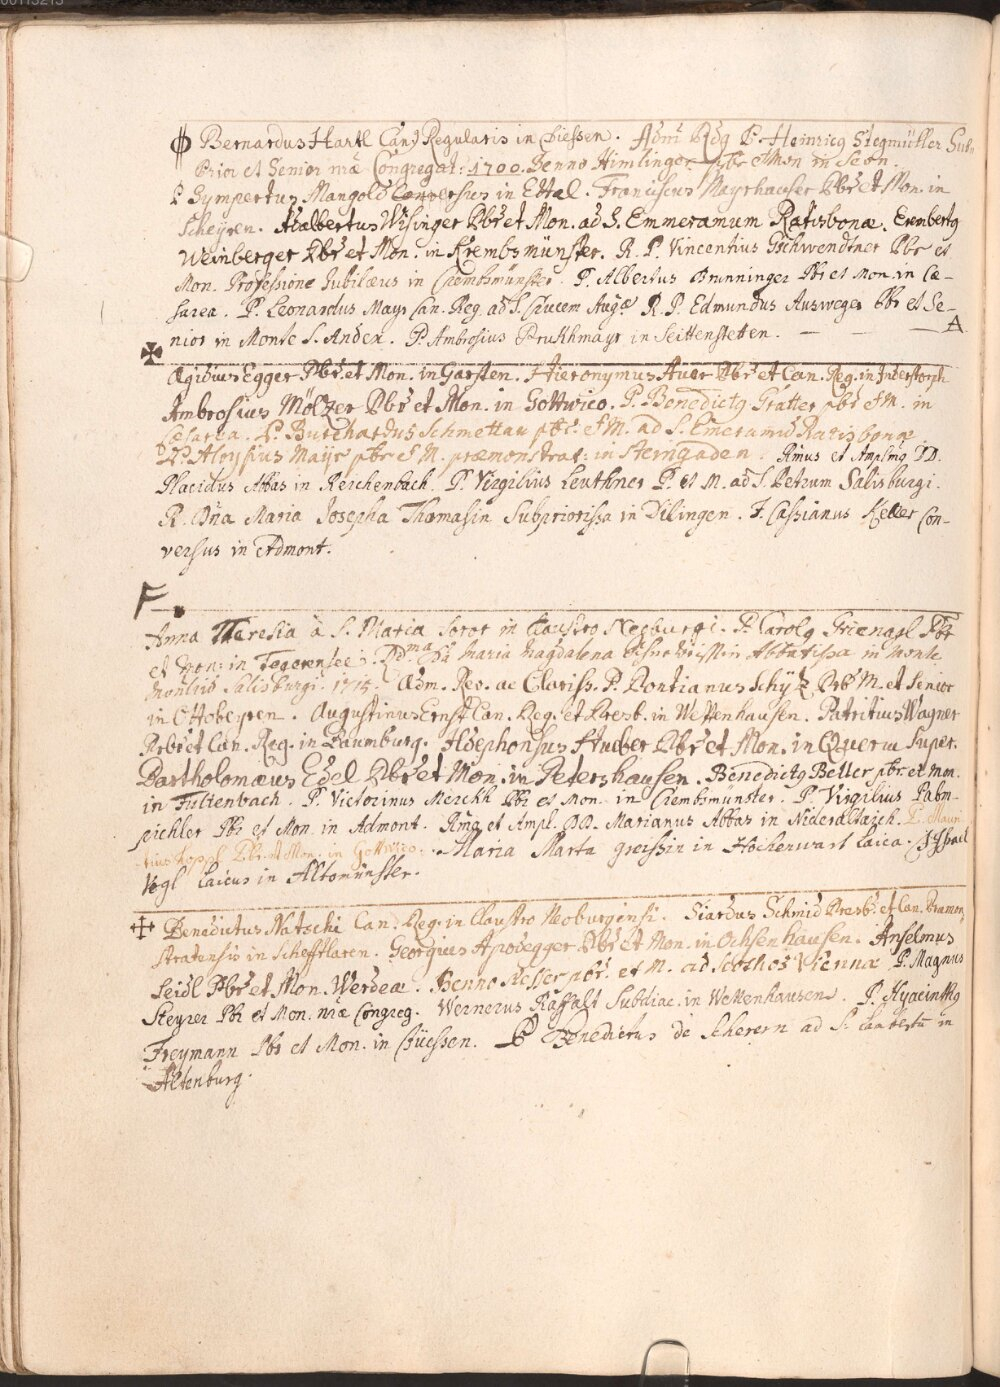 00113213
Bernardus Hartl Can. Regularis in Diessen. Adm. Rdg P. Heinricg Stegmüller Sub
Prior et Senior nræ Congregat: 1700. Benno Himlinger Pbr et Mon in Seon.
P. Sympertus Mangold Conversus in Ettal. Franciscus Mayrhauser Pbr et Mon. in
Scheyren. Adalbertus Wisinger Pbr et Mon. ad S. Emmeramum Ratisbonæ. Erenbertg
Weinberger Pbr et Mon. in Krembsmünster. R. P. Vincentius Gschwendtner Pbr et
Mon. Professione Jubilæus in Crembsmünster. P. Albertus Brunninger Pbr et Mon. in Cæ-
sarea. P. Leonardus Mayr Can. Reg. ad S. Crucem Augæ R. P. Edmundus Ausweger Pbr et Se-
nior in Monte S. Andex. P. Ambrosius Prukhmayr in Seittenstetten. A
Ægidius Egger Pbr et Mon. in Garsten. Hieronymus Auer Pbr et Can. Reg. in Inderstorph
Ambrosius Mölzer Pbr et Mon. in Gottwico. P. Benedictg Grätter pbr et M. in
Cæsarea. P. Burchardus Schmettau pbr. et M. ad S. Emeramũ Ratisbonæ
P. Aloysius Mayr pbr et M. præmonstrat: in Steingaden. Rmus et Amplmg DD.
Placidus Abbas in Reichenbach. P. Virgilius Leuthner P. et M. ad S. Petrum Salisburgi.
R. Dña Maria Josepha Thomasin Subpriorissa in Dilingen. F. Cassianus Keller Con-
versus in Admont.
F
Anna Theresia à S. Maria Soror in Claustro Neoburgi. P. Carolg Grienagl Pbr
et Mon: in Tegernsee. Rdma Dña Maria Magdalena Abbatissa in Monte
Monliũ Salisburgi. 1715. Adm. Rev. ac Clariss. P. Pontianus Schÿz Pbr M. et Senior
in Ottobeyren. Augustinus Ernst Can. Reg. et Presb. in Wettenhausen. Patritius Wagner
Presb: et Can. Reg. in Baumburg. Ildephonsus Hueber Pbr et Mon. in Querru Super.
Bartholomæus Edel Pbr et Mon. in Petershausen. Benedictg Beller pbr et Mon.
in Fultenbach. P. Victorinus Merckh Pbr et Mon. in Crembsmünster. P. Virgilius Palm-
pichler Pbr et Mon in Admont. Rmg et Ampl. DD. Marianus Abbas in Nideraltaich. P. Mauri
tius Pbr. et Mon. in Gottwico. Maria Marta greissin in Hochenwart Laica. F. Israel
Vogl Laicus in Altomünster.
Benedictus Natschi Can. Reg. in Claustro Neoburgensi. Siardus Schmid Presb. et Can. Præmon
stratensis in Scheftlaren. Georgius Apodegger Pbr et Mon. in Ochsenhausen. Anselmus
Seidl Pbr et Mon. Werdeæ. Benno Messer pbr. et M. ad Scothos Viennæ P. Magnus
Steyrer Pbr et Mon. nræ Congreg. Wernerus Raffalt Subdiac. in Wettenhausen. P. Hyacinthg
Freymann Pbr et Mon. in Füessen. P Benedictus de Scherern ad S. Lambertũ in
Altenburg.